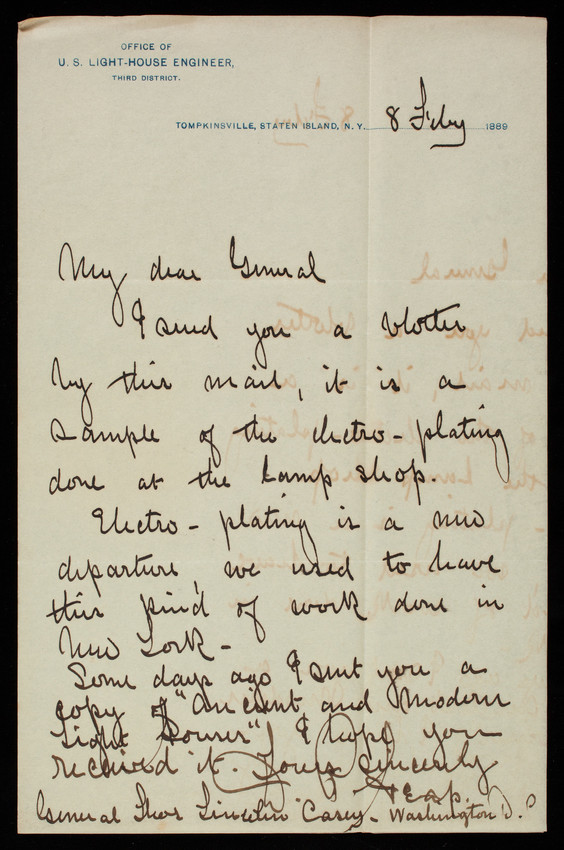 OFFICE OF
U. S. LIGHT-HOUSE ENGINEER,
THIRD DISTRICT.
TOMPKINSVILLE, STATEN ISLAND, N. Y. 8 Feby 1889
My dear General
I send you a blotter
by this mail, it is a
sample of the electro-plating
done at the Lamp shop.
Electro-plating is a new
departure, we used to have
this kind of work done in
New York-
Some days ago I sent you a
copy of "Ancient and Modern
Light Houses" I hope you
received it. Yours sincerely
Heap.
General Thos Lincoln Casey- Washington D.C